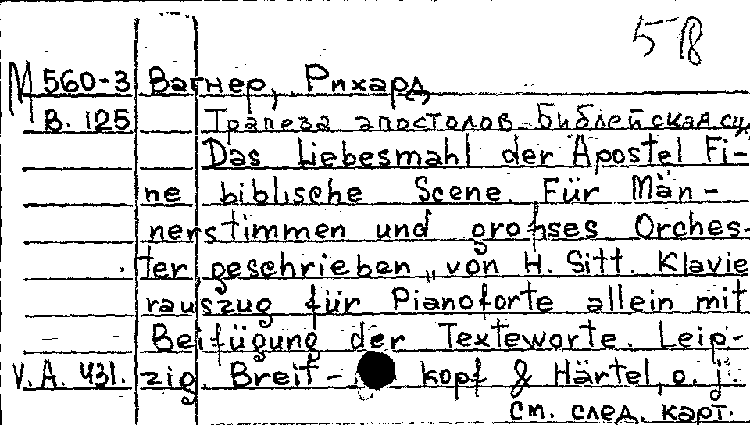 58
М 560-3 Вагнер, Рихард
В. 125 Трапеза апостолов. Библейская сц
Das Liebesmahl der Apostel Fi-
ne biblische Scene. Für Män-
nerstimmen und grohses Orches-
ter geschrieben „von H. Sitt. Klavie
rauszug für Pianoforte allein mit
Beifügung der Texteworte. Leip-
V.A. 431. zig. Breit- kopf & Härtel, o. j.
см. след. карт.